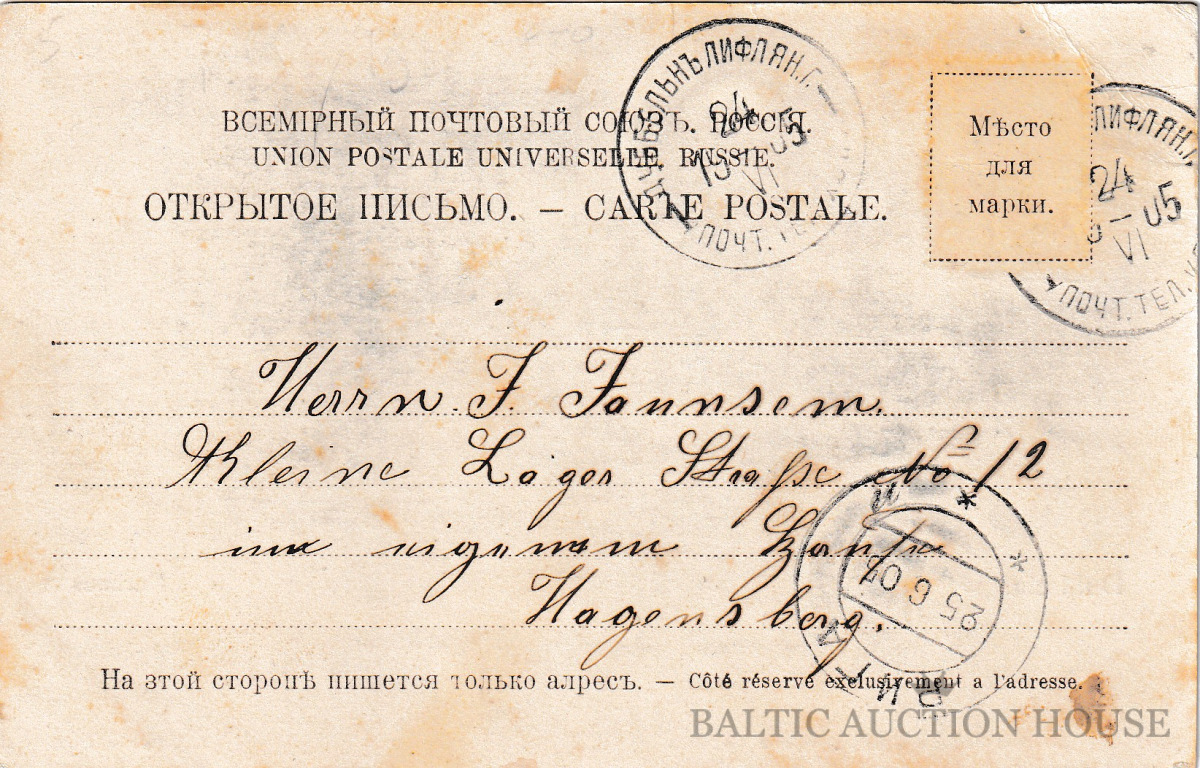 ВСЕМІРНЫЙ ПОЧТОВЫЙ СОЮЗЪ. РОССІЯ.
UNION POSTALE UNIVERSELLE. RUSSIE.
ОТКРЫТОЕ ПИСЬМО. — CARTE POSTALE.
Мѣсто
для
марки.
ДУББЕЛЬНЪ ЛИФЛЯН. Г.
24
VI
05
ПОЧТ. ТЕЛ.
ЛИФЛЯН. Г.
24
VI
05
ПОЧТ. ТЕЛ.
Herrn J. Jaunsem.
Kleine Lager Straße No 12
im eigenem Hause
Hagensberg.
РИГА
25 6 05
На этой сторонѣ пишется только адресъ. — Côté réservé exclusivement a l'adresse.
BALTIC AUCTION HOUSE